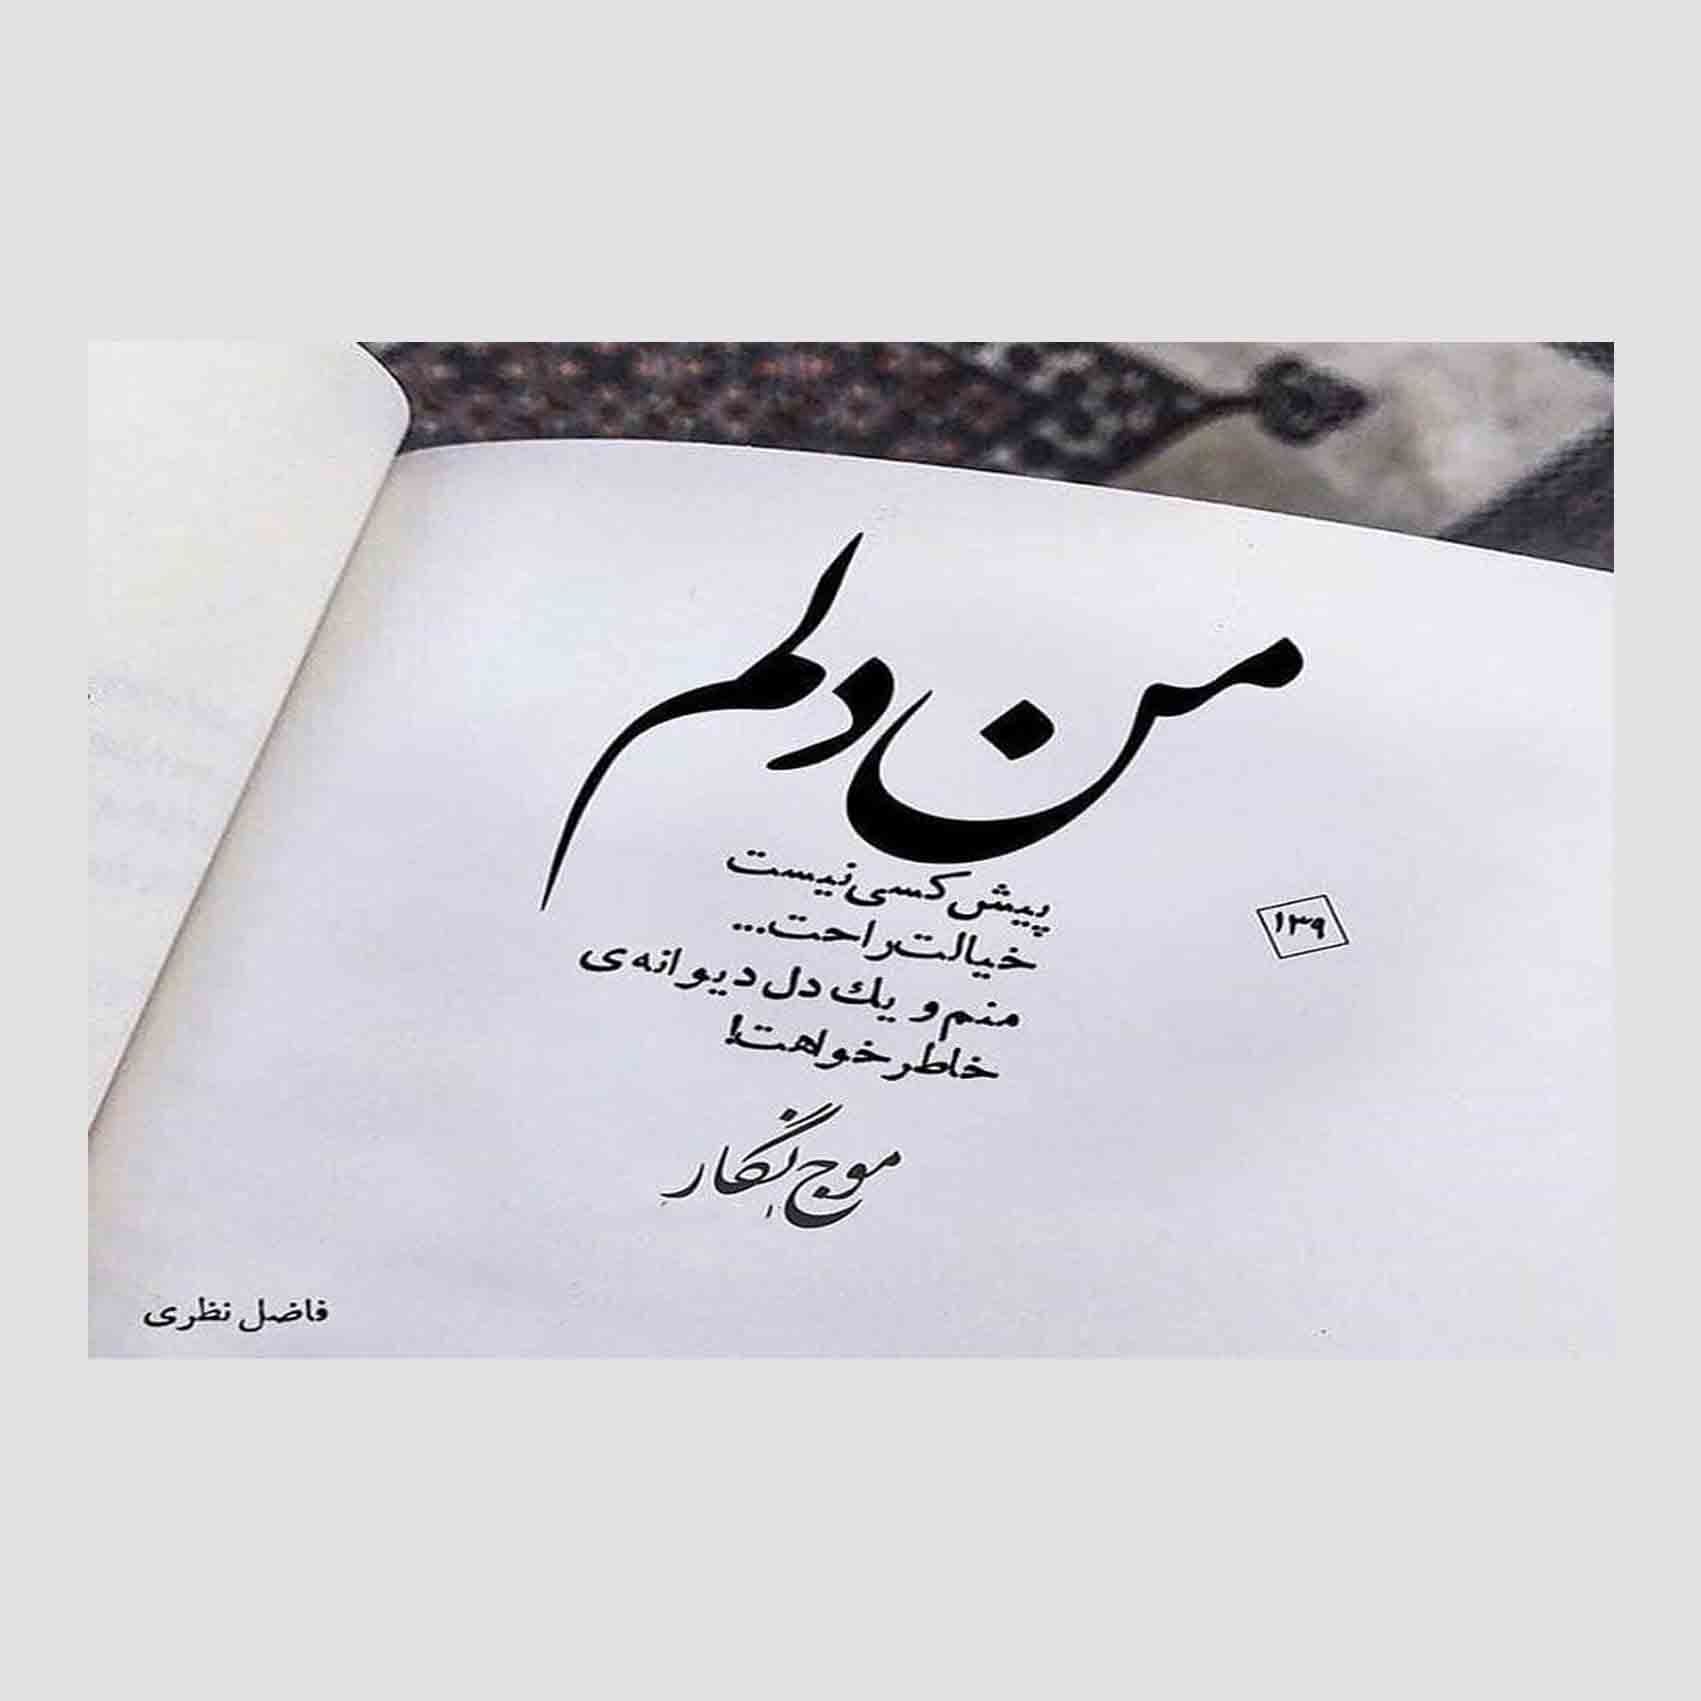 من دلم
پیش کسی نیست
خیالت راحت...
منم و یك دل دیوانه‌ی
خاطر خواهت!
۱۳۹
موج نگار
فاضل نظری